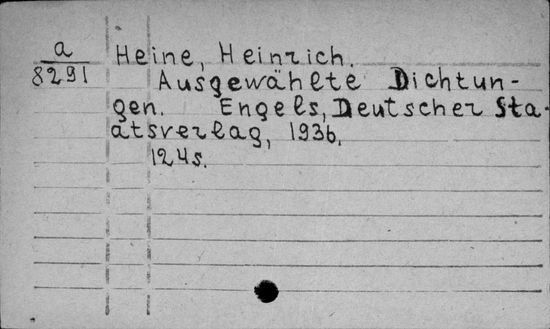 a Heine, Heinrich.
8291 Ausgewählte Dichtun-
gen. Engels, Deutscher Sta-
atsverlag, 1936.
124s.